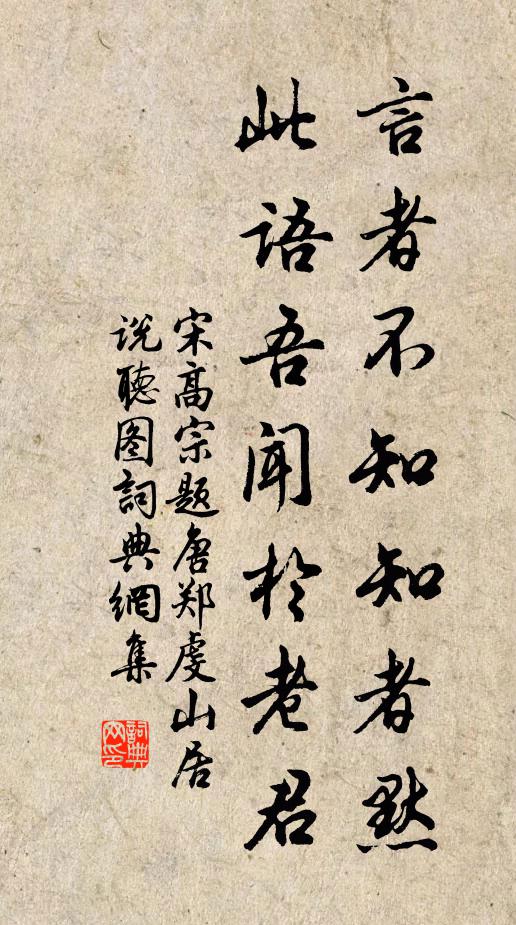 言者不知知者默
此语吾闻於老君
宋高宗题唐郑虔山居
说听图词典网集
詞典网印